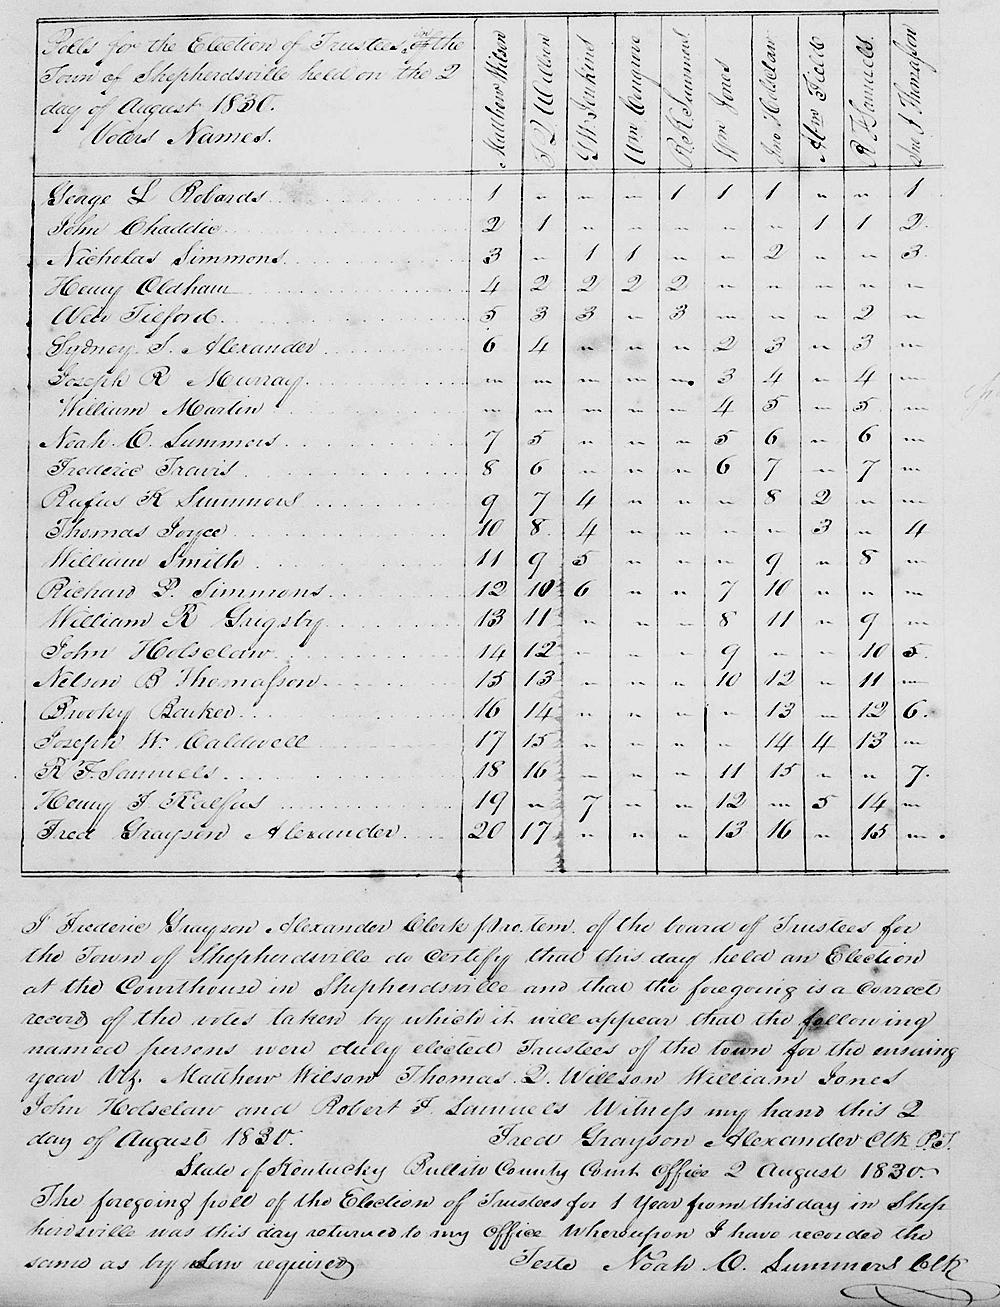 Polls for the Election of Trustees in the
Town of Shepherdsville held on the 2
day of August 1830.
Voters Names.
Matthew Wilson
T Q Willson
G W Jenkins
Wm
R K Summers
Wm Jones
Jno Holsclaw
Wm Field
R F Samuels
Thomasson
George L Robards 1 " " " 1 1 1 " " 1
John Chaddic 2 1 " " " " " 1 1 2
Nicholas Simmons 3 " 1 1 " " 2 " " 3
Henry Oldham 4 2 2 2 2 " " " " "
Wier Tilford 5 3 3 " 3 " " " 2 "
Sydney S. Alexander 6 4 " " " 2 3 " 3 "
Joseph R Murray " " " " " 3 4 " 4 "
William Martin " " " " " 4 5 " 5 "
Noah C. Summers 7 5 " " " 5 6 " 6 "
Frederic Travis 8 6 " " " 6 7 " 7 "
Rufus K Summers 9 7 4 " " " 8 2 " "
Thomas Joyce 10 8 4 " " " " 3 " 4
William Smith 11 9 5 " " " 9 " 8 "
Richard P. Simmons 12 10 6 " " 7 10 " " "
William R Grigsby 13 11 " " " 8 11 " 9 "
John Holsclaw 14 12 " " " 9 " " 10 5
Nelson B Thomasson 15 13 " " " 10 12 " 11 "
Barker 16 14 " " " " 13 " 12 6
Joseph W. Caldwell 17 15 " " " " 14 4 13 "
R F. Samuels 18 16 " " " 11 15 " " 7
Henry F Kalfus 19 " 7 " " 12 " 5 14 "
Fred Grayson Alexander 20 17 " " " 13 16 " 15 "
I Frederic Grayson Alexander Clerk pro. tem. of the board of Trustees for
the Town of Shepherdsville do certify that this day held an Election
at the Courthouse in Shepherdsville and that the foregoing is a correct
record of the votes taken by which it will appear that the following
named persons were duly elected Trustees of the town for the ensuing
year Viz. Matthew Wilson Thomas. Q. Willson William Jones
John Holsclaw and Robert F. Samuels Witness my hand this 2
day of August 1830. Fred Grayson Alexander Clk P.T.
State of Kentucky Bullitt County Court Office 2 August 1830.
The foregoing poll of the Election of Trustees for 1 Year from this day in Shep
herdsville was this day returned to my office Whereupon I have recorded the
same as by Law required
Teste Noah. C. Summers Clk